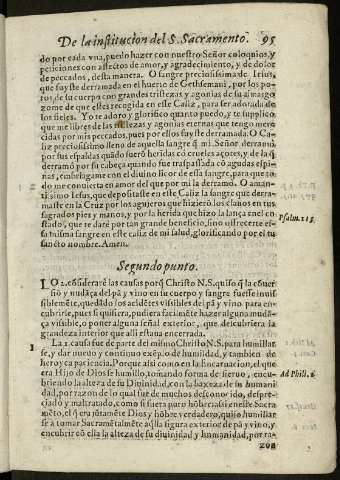 De la institucion del S. Sacramento. 95
do por cada vna, puedo hazer con nuestro Señor coloquios, y
peticiones con affectos de amor, y agradecimiento, y de dolor
de peccados, desta manera. O sangre preciosissima de Iesus,
que fuyste derramada en el huerto de Gethsemani, por los po-
ros, de su cuerpo con grandes tristezas y agonias de su al margo
gome de que estes recogida en este Caliz, para ser adorada de
los fieles. Yo te adoro y glorifico quanto puedo, y te supplico
que me libres de las tristezas y agonias eternas que tengo mere
cidas por mis peccados, pues por ellos fuyste derramada. O Ca-
liz preciosissimo lleno de aquella sangre q̃ mi Señor derramò
por sus espaldas quãdo fuerõ heridas cõ crueles açotes, y de la q̃
derramò por su cabeça quando fue traspassada cõ agudas espi-
nas, embriagame con el diuino licor de essa sangre, para que to
do me conuierta en amor del que por mi la derramò. O aman-
tissimo Iesus, que depositaste en este Caliz la sangre que derra-
maste en la Cruz por los agujeros que hizierõ los clauos en tus
sagrados pies y manos, y por la herida que hizo la lança en el co-
stado, que te darè por tan grande beneficio, sino ofrecerte es-
sa misma sangre en este caliz de mi salud, glorificando por el tu
sancto nombre. Amen.
Psalm. 115.
Segundo punto.
LO 2. cõsiderarè las causas porq̃ Christo N. S. quiso q̃ la cõuer
siõ y mudãça del pã y vino en su cuerpo y sangre fuesse inui-
siblemẽte, quedãdo los accidẽtes visibles de pã y vino para en-
cubrirle, pues si quisiera, pudiera facilmẽte hazer alguna mudã-
ça visible, o poner alguna señal exterior, que descubriera la
grandeza interior que alli estaua encerrada.
1 La 1. causa fue de parte del mismo Christo N. S. para humillar
se, y dar nueuo y continuo exẽplo de humildad, y tambien de
heroyca paciencia. Porque assi como en la Encarnacion, el que
era Hijo de Dios se humillò, tomando forma de sieruo, encu-
briendo la alteza de su Diuinidad, con la baxeza de su humani
dad, por razon de lo qual fue de muchos desconocido, despre-
ciado y maltratado, como si fuera puro hõbre; assi en este Sacra
mẽto, el q̃ era juntamẽte Dios y hõbre verdadero, quiso humillar
se a tomar Sacramẽtalmẽte aq̃lla figura exterior de pã y vino, y
encubrir cõ ella la alteza de su diuinidad y humanidad, por ra-
Ad Phili. 2.